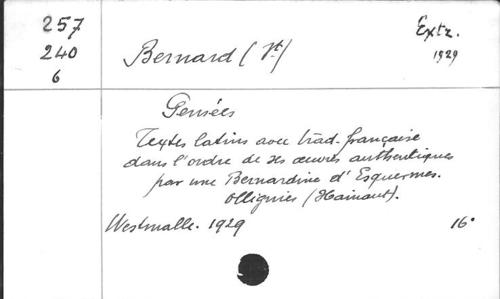 257
240
6
Bernard (St)
Extr.
1929
Pensées
Textes latins avec trad. française
dans l'ordre de ses œuvres authentiques
par une Bernardine d'Esquermes.
Ollignies (Hainaut).
Westmalle. 1929
16°